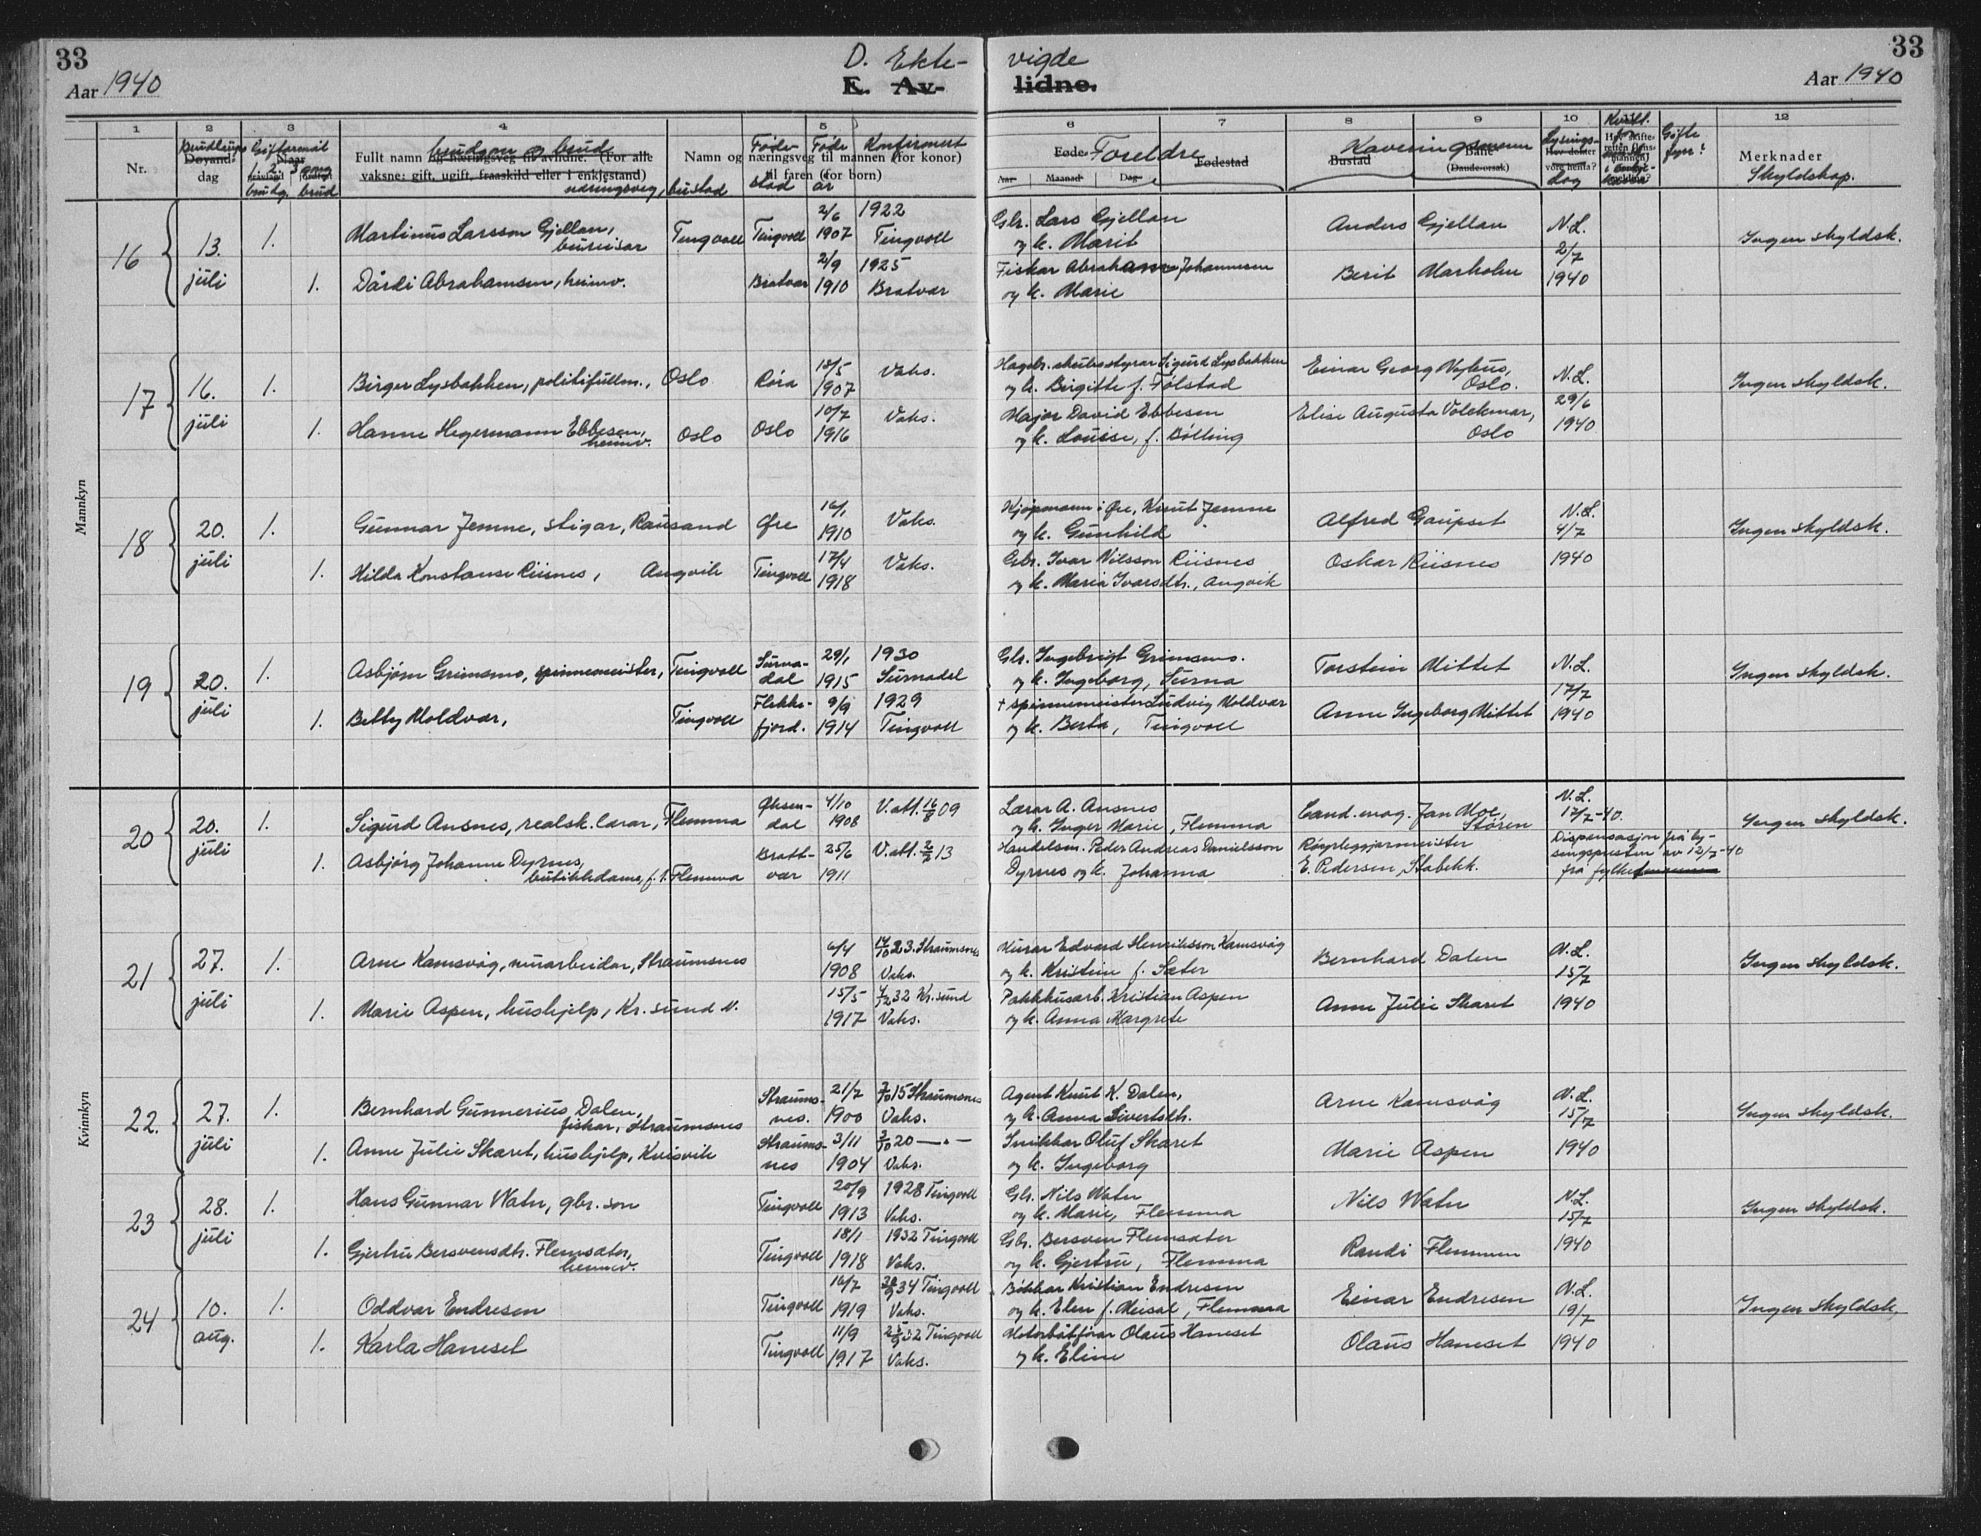 33
Aar 1940
D. Ekte- vigde
E. Av- lidne.
Aar 1940
33
1 2 3 4 5 6 7 8 9 10 12
Nr.
Brudlaups
dag
Fullt namn brudgom og brud (For alle
vaksne: gift, ugift, fraaskild eller i enkjestand)
næringsveg, bustad
Namn og næringsveg til mannen (for konor)
til faren (for born)
Føde-
stad
Føde
år
Konfirmert
Foreldre
Føde-
Aar Maanad Dag
Fødestad
Bustad
Kaveringsmenn
Bane
(Daude-orsak)
Lysings-
dag
Gifte
fyrr?
Merknader
Skyldskap.
Mannkyn
16
13.
juli
1.
Martinus Larsson Gjellan,
bureisar
Tingvoll
Tingvoll
2/6
1907
1922
Tingvoll
Gbr. Lars Gjellan
og k. Marit
Anders Gjellan
N.L.
2/7
1940
Ingen skyldsk.
1.
Dårdi Abrahamsen, heimv.
Bratvær
2/9
1910
1925
Bratvær
Fiskar Abraham Johannesen
og k. Marie
Berit Marholm
17
16.
juli
1.
Birger Lysbakken, politifullm.,
Oslo
Røra
1907
Vaks.
Hagebr.skulestyrar Sigurd Lysbakken
og k. Birgitte f. Følstad
Einar Georg Nybus,
Oslo.
N.L.
29/6
1940
Ingen skyldsk.
1.
Hanne Hegermann Ebbesen,
heimv.
Oslo
Oslo
10/7
1916
Vaks.
Major David Ebbesen
og k. Louise, f. Bølling
Elise Augusta Volckmar,
Oslo
18
20.
juli
1.
Gunnar Jemne, stigar, Rausand
Øre
16/1
1910
Vaks.
Kjøpmann i Øre, Knut Jemne
og k. Gunhild "
Alfred Gaupset
N.L.
4/7
1940
Ingen skyldsk.
1.
Hilda Konstanse Riisnes,
Angvik
Tingvoll
17/4
1918
Vaks.
Gbr. Ivar Nilsson Riisnes
og k. Maria Ivarsdtr., Angvik
Oskar Riisnes
19
20.
juli
1.
Asbjørn Grimsmo, spinnemeister,
Tingvoll
Surna-
dal
29/1
1915
1930
Surnadal
Gbr. Ingebrigt Grimsmo.
og k. Ingeborg, Surna
Torstein Mittet
N.L.
17/7
1940
Ingen skyldsk.
1.
Betty Moldvær,
Tingvoll
Flekke-
fjord.
9/9
1914
1929
Tingvoll
+ spinnemeister Ludvig Moldvær
og k. Berta, Tingvoll
Anne Ingeborg Mittet
20
20.
juli
1.
Sigurd Ansnes, realsk.lærar, Flemma
Øksen-
dal
4/10
1908
V.att. 16/8 09
Lærar A. Ansnes
og k. Inger Marie, Flemma
Cand. mag. Jan Moe,
Støren
N.L.
17/7-40.
Ingen skyldsk.
1.
Asbjørg Johanne Dyrnes,
butikkdame, f. t. Flemma
Bratt-
vær
25/6
1911
V.att. 2/2 13
Handelsm. Peder Andreas Danielsson
Dyrnes og k. Johanna
Røyrleggjarmeister
E. Pedersen, Stabekk.
Dispensasjon frå ly-
singsplikten av 12/7-40
frå fylkesmannen
21
27.
juli
1.
Arne Kamsvåg, murarbeidar, Straumsnes
6/4
1908
14/10 23. Straumsnes
Vaks.
Murar Edvard Henriksson Kamsvåg
og k. Kristine f. Sæter
Bernhard Dalen
N.L.
15/7
1940
Ingen skyldsk.
1.
Marie Aspen, hushjelp, Kr.sund N.
15/5
1917
4/12 32 Kr.sund
Vaks.
Pakkhusarb. Kristian Aspen
og k. Anna Margrete
Anne Julie Skaret
Kvinnkyn
22.
27.
juli
1.
Bernhard Gunnerius Dalen,
fiskar, Straumsnes
Straums-
nes.
21/7
1900
3/10 15 Straumsnes
Vaks.
Agent Knut K. Dalen,
og k. Anna Sivertsdtr.
Arne Kamsvåg
N.L.
15/7
1940
Ingen skyldsk.
1.
Anne Julie Skaret, hushjelp, Kvisvik
Straums-
nes
3/11
1904
3/10 20 — " —
Vaks.
Snikkar Oluf Skaret
og k. Ingeborg
Marie Aspen
23
28.
juli
1.
Hans Gunnar Watn, gbr. son
Tingvoll
20/9
1913
1928 Tingvoll
Vaks.
Gbr. Nils Watn
og k. Marie, Flemma
Nils Watn
N.L.
15/7
1940
Ingen skyldsk.
1.
Gjertru Bersvensdtr. Flemsæter,
heimv.
Tingvoll
18/1
1918
1932 Tingvoll
Vaks.
Gbr. Bersven Flemsæter
og k. Gjertru, Flemma
Randi Flemmen
24
10.
aug.
1.
Oddvar Endresen
Tingvoll
16/7
1919
34 Tingvoll
Vaks.
Bøkkar Kristian Endresen
og k. Elen f. Meisal, Flemma
Einar Endresen
N.L.
19/7
1940
Ingen skyldsk.
1.
Karla Hanset
Tingvoll
11/9
1917
32 Tingvoll
Vaks.
Motorbåtførar Olaus Hanset
og k. Eline
Olaus Hanset